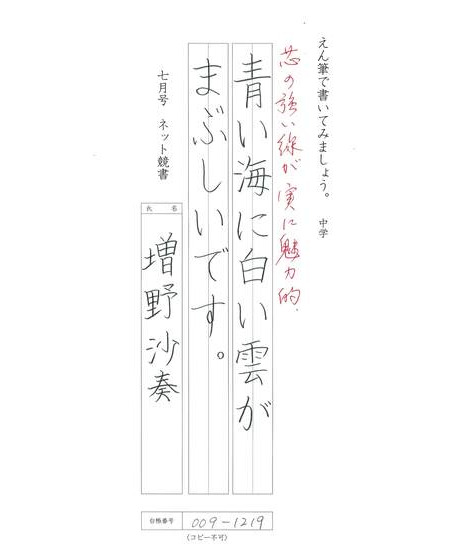 えん筆で書いてみましょう。 中学
芯の強い線が実に魅力的.
青い海に白い雲が
まぶしいです。
七月号 ネット競書
氏名
増野沙奏
台帳番号 009-1219
(コピー不可)